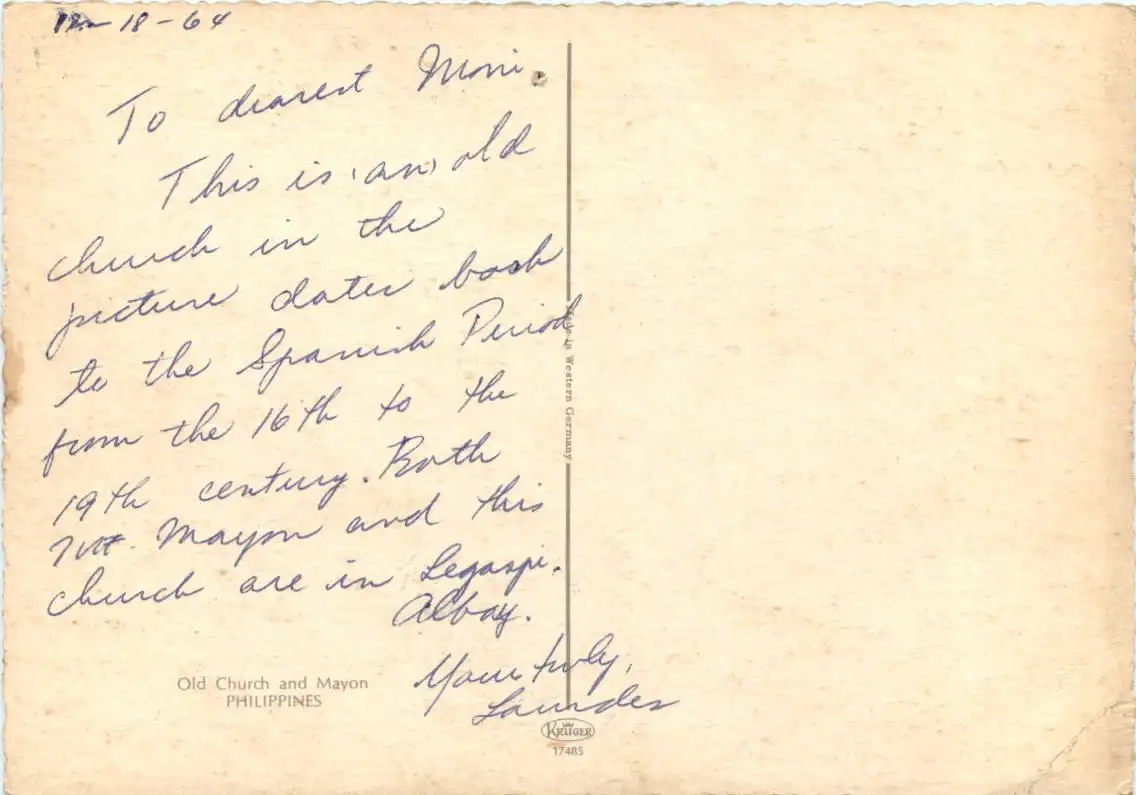 12-18-64
To dearest Moni.
This is (an) old
church in the
picture dates back
to the Spanish Period
from the 16th to the
19th century. Both
Mt. Mayon and this
church are in Legaspi.
Albay.
Your truly,
Lourdes
Old Church and Mayon
PHILIPPINES
Made in Western Germany
KRÜGER
17485